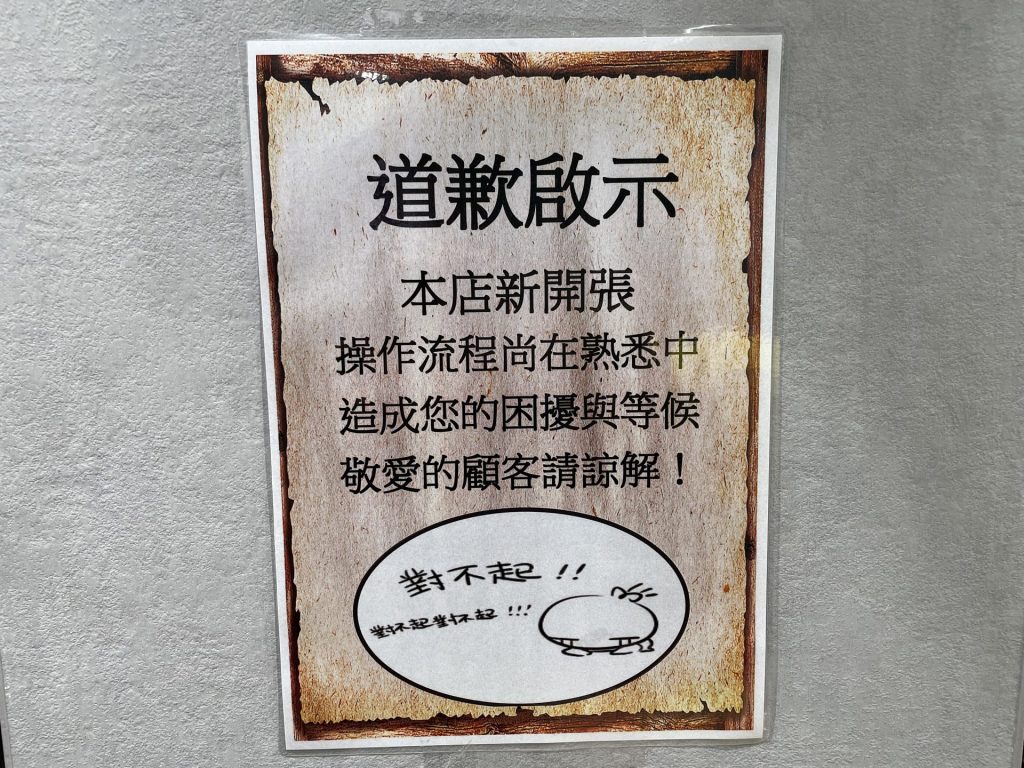 道歉啟示
本店新開張
操作流程尚在熟悉中
造成您的困擾與等候
敬愛的顧客請諒解！
對不起！！
對不起對不起！！！